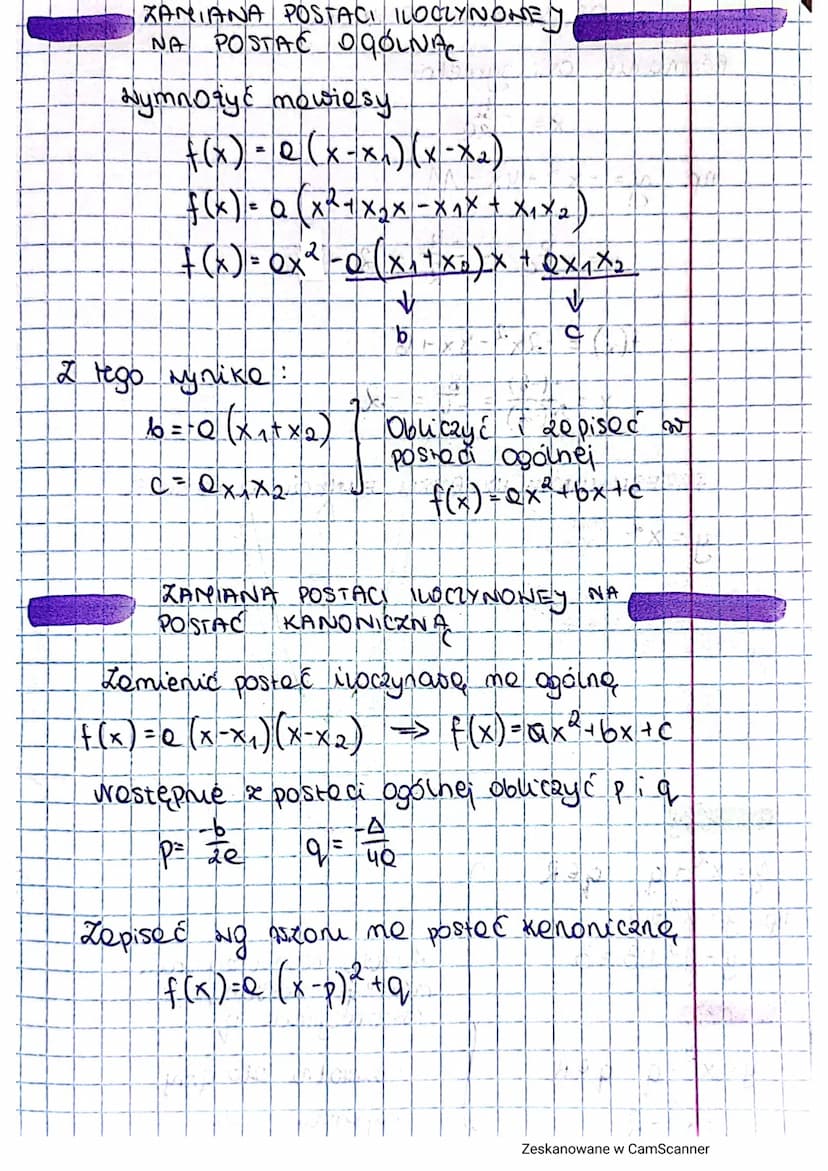 ZAMIANA POSTACI ILOCZYNOWEJ
NA POSTAĆ OGÓLNĄ
Wymnożyć nawiasy
f(x) = a(x-x₁)(x-x₂)
f(x) = a(x²+x₂x-x₁x+x₁x₂)
f(x) = ax²-a(x₁+x₂)x + ax₁x₂
↓ ↓
b c
Z tego wynika:
b=-a(x₁+x₂) Obliczyć i zapisać w
postaci ogólnej
c= ax₁x₂ f(x)=ax²+bx+c
ZAMIANA POSTACI ILOCZYNOWEJ NA
POSTAĆ KANONICZNĄ
Zamienić postać iloczynową na ogólną
f(x)=a(x-x₁)(x-x₂) => f(x)=ax²+bx+c
Następnie z postaci ogólnej obliczyć p i q
p= -b/2a q= -Δ/4a
Zapisać wg na postać kanoniczną
f(x)=a(x-p)²+q
Zeskanowane w CamScanner